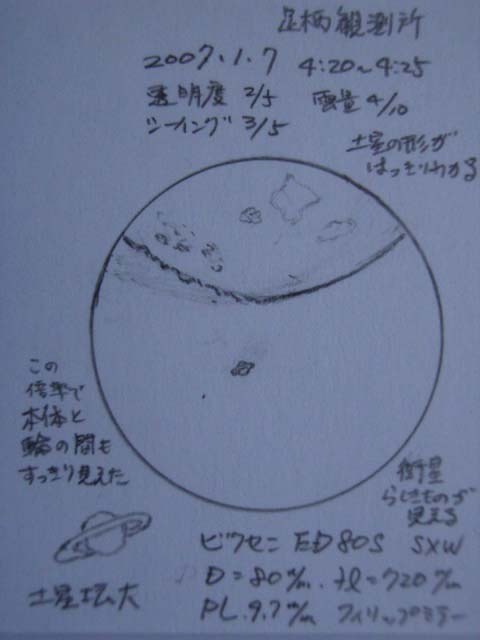 足柄観測所
2007.1.7 4:20〜4:25
透明度 2/5 雲量 4/10
シーイング 3/5
土星の形が
はっきりわかる
この
倍率で
本体と
輪の間も
すっきり見えた
衛星
らしきものが
見える
土星拡大
ビクセン ED80S SXW
D=80m/m. fl=720m/m
PL.9.7m/m フィリップスミラー